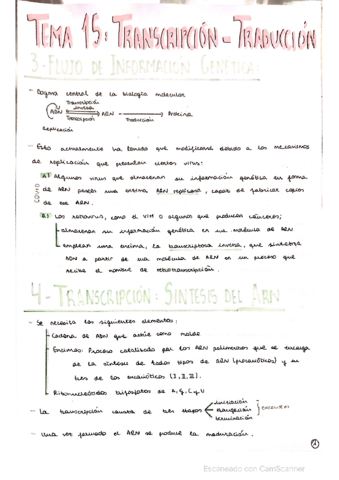 TEMA 15: TRANSCRIPCIÓN - TRADUCCIÓN
3- FLUJO DE INFORMACIÓN GENÉTICA:
- Dogma central de la biología molecular
Transcripción
inversa
ADN ARN Proteína
Transcripción Traducción
Replicación
- Esto actualmente ha tenido que modificarse debido a los mecanismos
de replicación que presentan ciertos virus:
A) Algunos virus que almacenan su información genética en forma
de ARN poseen una enzima, ARN replicasa, capaz de fabricar copias
de ese ARN.
COVID
B) Los retrovirus, como el VIH o algunos que producen cánceres;
almacenan su información genética en una molécula de ARN
emplean una enzima, la transcriptasa inversa, que sintetiza
ADN a partir de una molécula de ARN en un proceso que
recibe el nombre de retrotranscripción.
4- TRANSCRIPCIÓN: SÍNTESIS DEL ARN
- Se necesita los siguientes elementos:
Cadena de ADN que actúe como molde
Enzimas: Proceso catalizado por las ARN polimerasas que se encarga
de la síntesis de todos tipos de ARN (procariotas) y en
tres de los eucariotas (I, II, III).
Ribonucleótidos trifosfatos de A, G, C y U
- La transcripción consta de tres etapas
iniciación
elongación
terminación
- Una vez formado el ARN se produce la maduración.
1
Escaneado con CamScanner